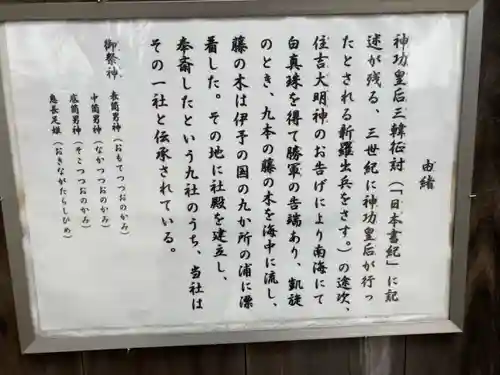 由緒
神功皇后三韓征討(「日本書紀」に記
述が残る、三世紀に神功皇后が行っ
たとされる新羅出兵をさす。)の途次、
住吉大明神のお告げにより南海にて
白真珠を得て勝軍の吉端あり、凱旋
のとき、九本の藤の木を海中に流し、
藤の木は伊予の国の九か所の浦に漂
着した。その地に社殿を建立し、
奉斎したという九社のうち、当社は
その一社と伝承されている。
御祭神 表筒男神(おもてつつおのかみ)
中筒男神(なかつつおのかみ)
底筒男神(そこつつおのかみ)
息長足姫(おきながたらしひめ)